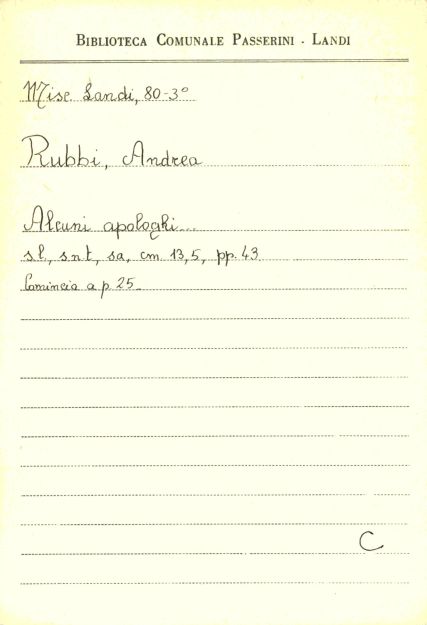 BIBLIOTECA COMUNALE PASSERINI - LANDI
Misc. Landi, 80-3°
Rubbi, Andrea
Alcuni apologhi...
s.l., s.n.t., s.a., cm. 13,5, pp. 43
Comincia a p. 25.
C